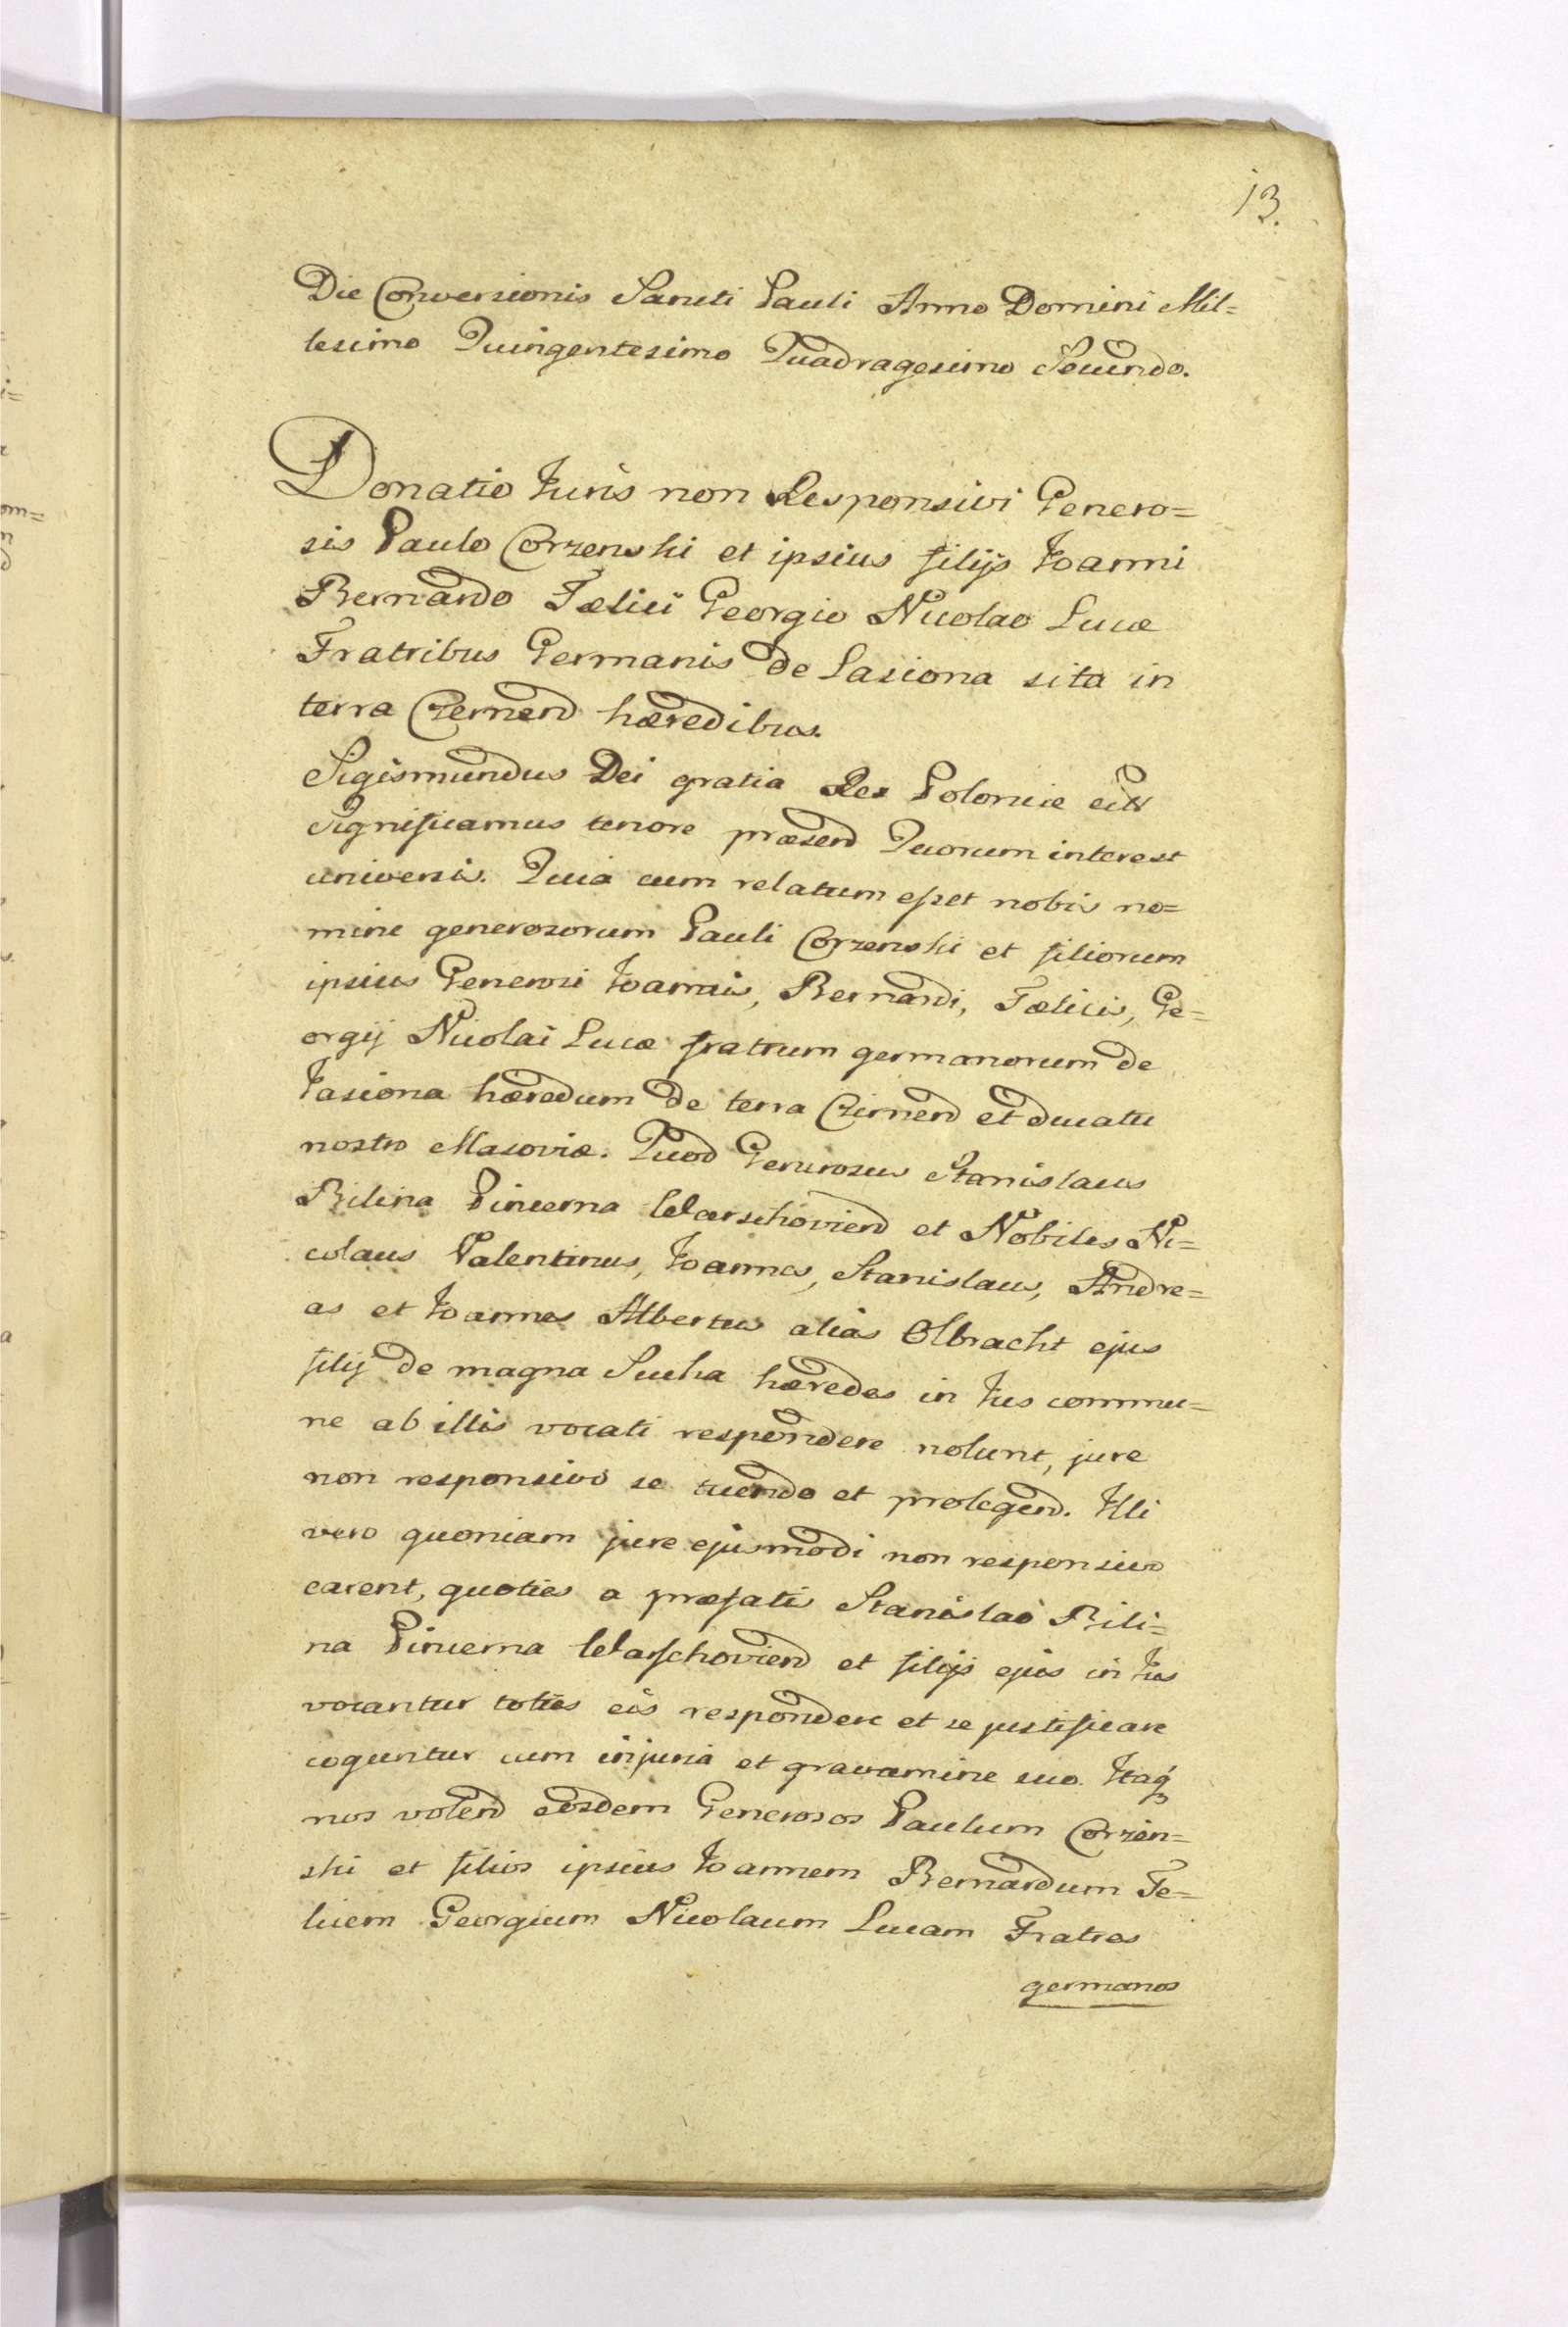 13.
Die Conversionis Sancti Pauli Anno Domini Mil=
lesimo Quingentesimo Quadragesimo Secundo.
Donatio Juris non Responsivi Genero=
sis Paulo Corzenski et ipsius filijs Joanni
Bernardo Fælici Georgio Nicolao Lucæ
Fratribus Germanis de Lasiona sita in
terra Czernen hæredibus.
Sigismundus Dei gratia Rex Poloniæ etc
Significamus tenore præsen Quorum interest
universis. Quia cum relatum esset nobis no=
mine generosorum Pauli Corzenski et filiorum
ipsius Generosi Joannis, Bernardi, Fælicis, Ge=
orgij Nicolai Lucæ fratrum germanorum de
Jasiona hæredum de terra Czirnen et ducatu
nostro Masoviæ. Quod Generosus Stanislaus
Bilina Pincerna Warschovien et Nobiles Ni=
colaus Valentinus, Joannes, Stanislaus, Andre=
as et Joannes Albertus alias Olbracht ejus
filij de magna Sucha hæredes in Jus commu=
ne ab illis vocati respondere nolunt, jure
non responsivo se tuendo et protegen. Illi
vero quoniam jure ejusmodi non responsivo
carent, quoties a præfatis Stanislao Bili=
na Pincerna Warschovien et filijs ejus in Jus
vocantur toties eis respondere et se justificare
coguntur cum injuria et gravamine suo. Itaq
nos volen eosdem Generosos Paulum Corzen=
ski et filios ipsius Joannem Bernardum Fe=
licem Georgium Nicolaum Lucam Fratres
germanos